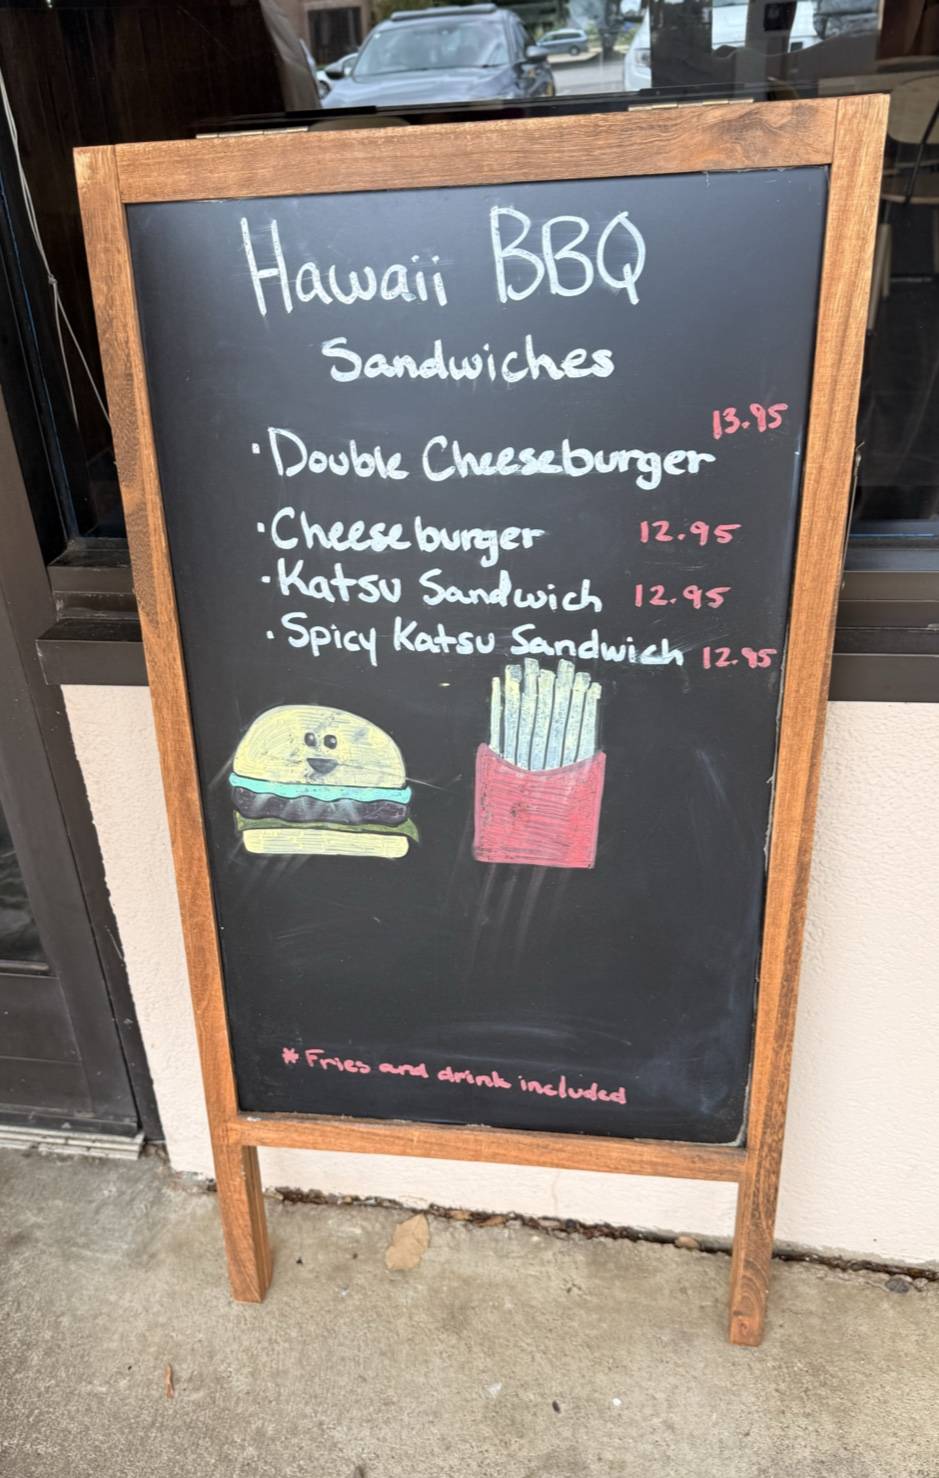 Hawaii BBQ
Sandwiches
· Double Cheeseburger 13.95
· Cheeseburger 12.95
· Katsu Sandwich 12.95
· Spicy Katsu Sandwich 12.95
* Fries and drink included